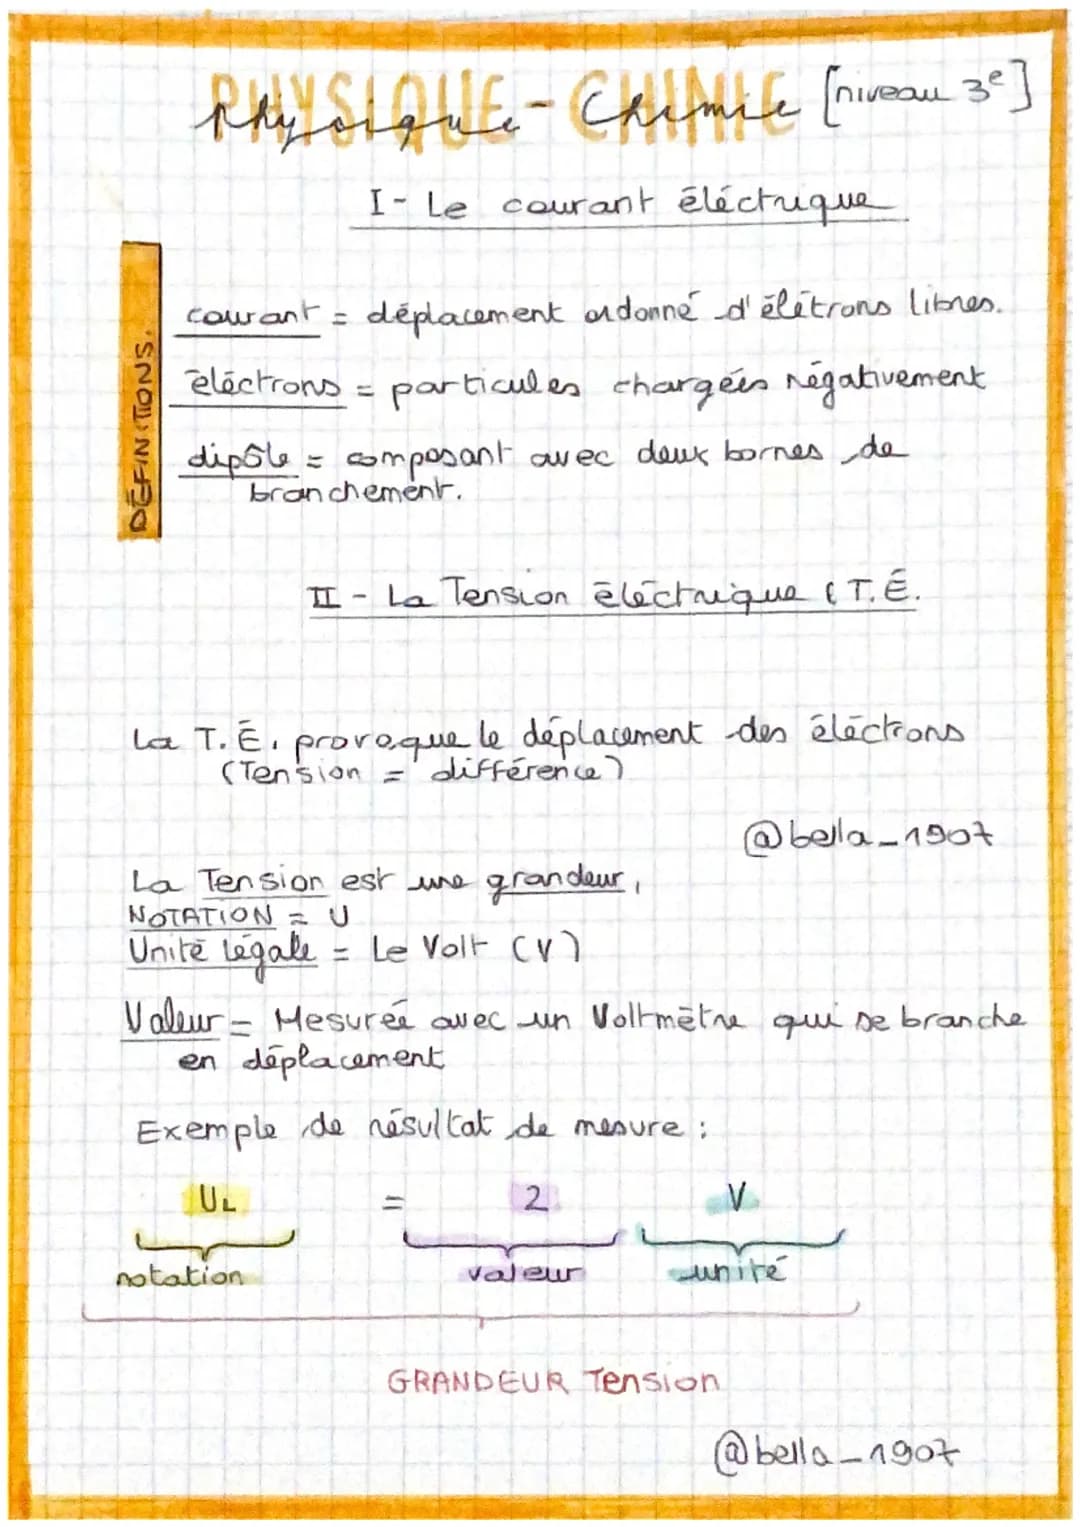 PHYSIQUE-CHIMIE
Physique - Chimie [niveau 3e]
I- Le courant éléctrique
DÉFINITIONS.
courant = déplacement ordonné d'élétrons libres.
éléctrons = particules chargées négativement
dipôle = composant avec deux bornes de
branchement.
II - La Tension éléctrique (T.É.
La T.É. provoque le déplacement des éléctrons
(Tension = différence)
@bella_1907
La Tension est une grandeur,
NOTATION = U
Unité légale = Le Volt (V)
Valeur = Mesurée avec un Voltmètre qui se branche
en déplacement
Exemple de résultat de mesure :
UL = 2 V
notation valeur unité
GRANDEUR Tension
@bella_1907